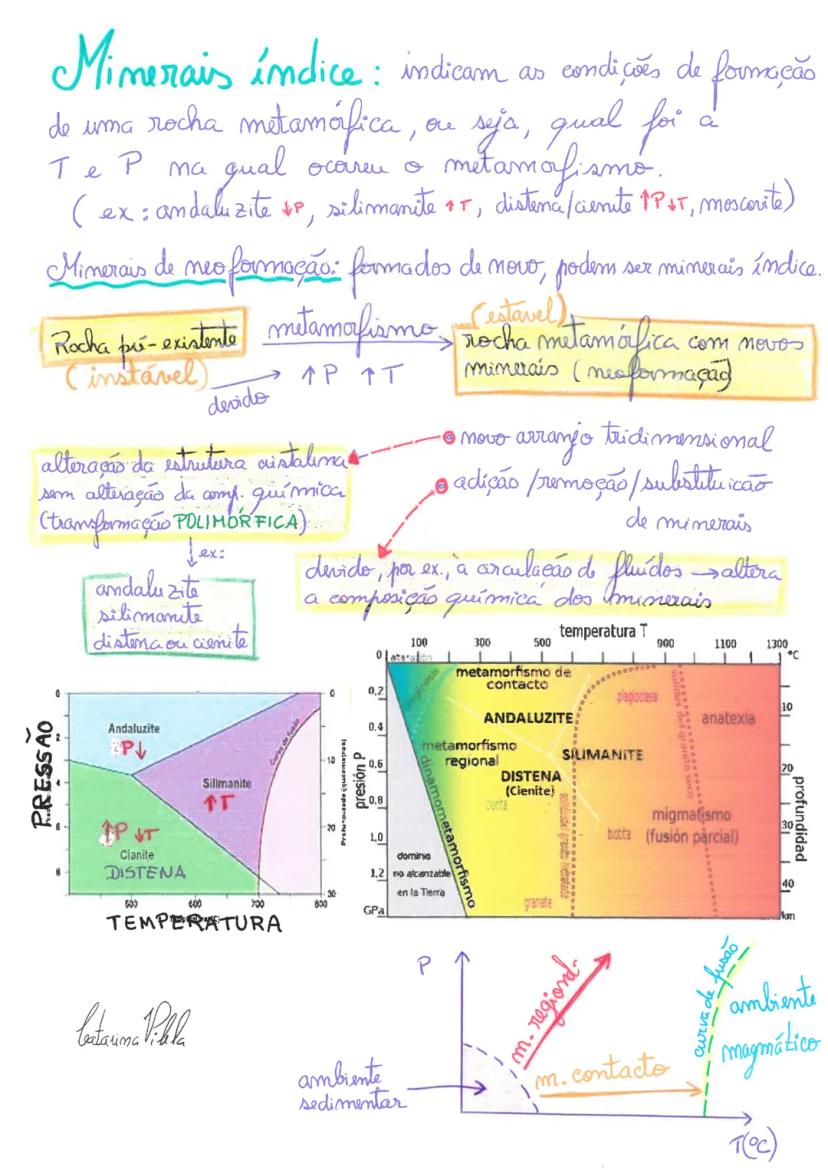 Minerais índice: indicam as condições de formação
de uma rocha metamórfica, ou seja, qual foi a
T e P na qual ocorreu o metamorfismo.
(ex: andaluzite ↓P, silimanite ↑T, distena/cienite ↑P↓T, moscovite)
Minerais de neoformação: formados de novo, podem ser minerais índice.
Rocha pré-existente
(instável)
metamorfismo
devido
↑P ↑T
(estável)
rocha metamórfica com novos
minerais (neoformação)
novo arranjo tridimensional
adição/remoção/substituição
de minerais
alteração da estrutura cristalina
sem alteração da comp. química
(transformação POLIMÓRFICA)
ex:
andaluzite
silimanite
distena ou cienite
devido, por ex., à circulação de fluídos → altera
a composição química dos minerais
PRESSÃO
0
2
4
6
8
Andaluzite
P↓
Silimanite
↑T
↑P ↓T
Cianite
DISTENA
Curva de fusão
0
10
20
30
500
600
700
800
TEMPERATURA
temperatura T
100 300 500 900 1100 1300 °C
presión P
0
0,2
0.4
0,6
0,8
1,0
1,2
GPa
metamorfismo de
contacto
ANDALUZITE
metamorfismo
regional
DISTENA
(Cienite)
SILIMANITE
plagioclasa
anatexia
migmatismo
(fusión parcial)
biotita
granate
dinamometamorfismo
dominio
no alcanzable
en la Tierra
profundidad
10
20
30
40
km
P
m. regional
m. contacto
ambiente
sedimentar
curva de fusão
ambiente
magmático
T(ºC)
Catarina Vilela